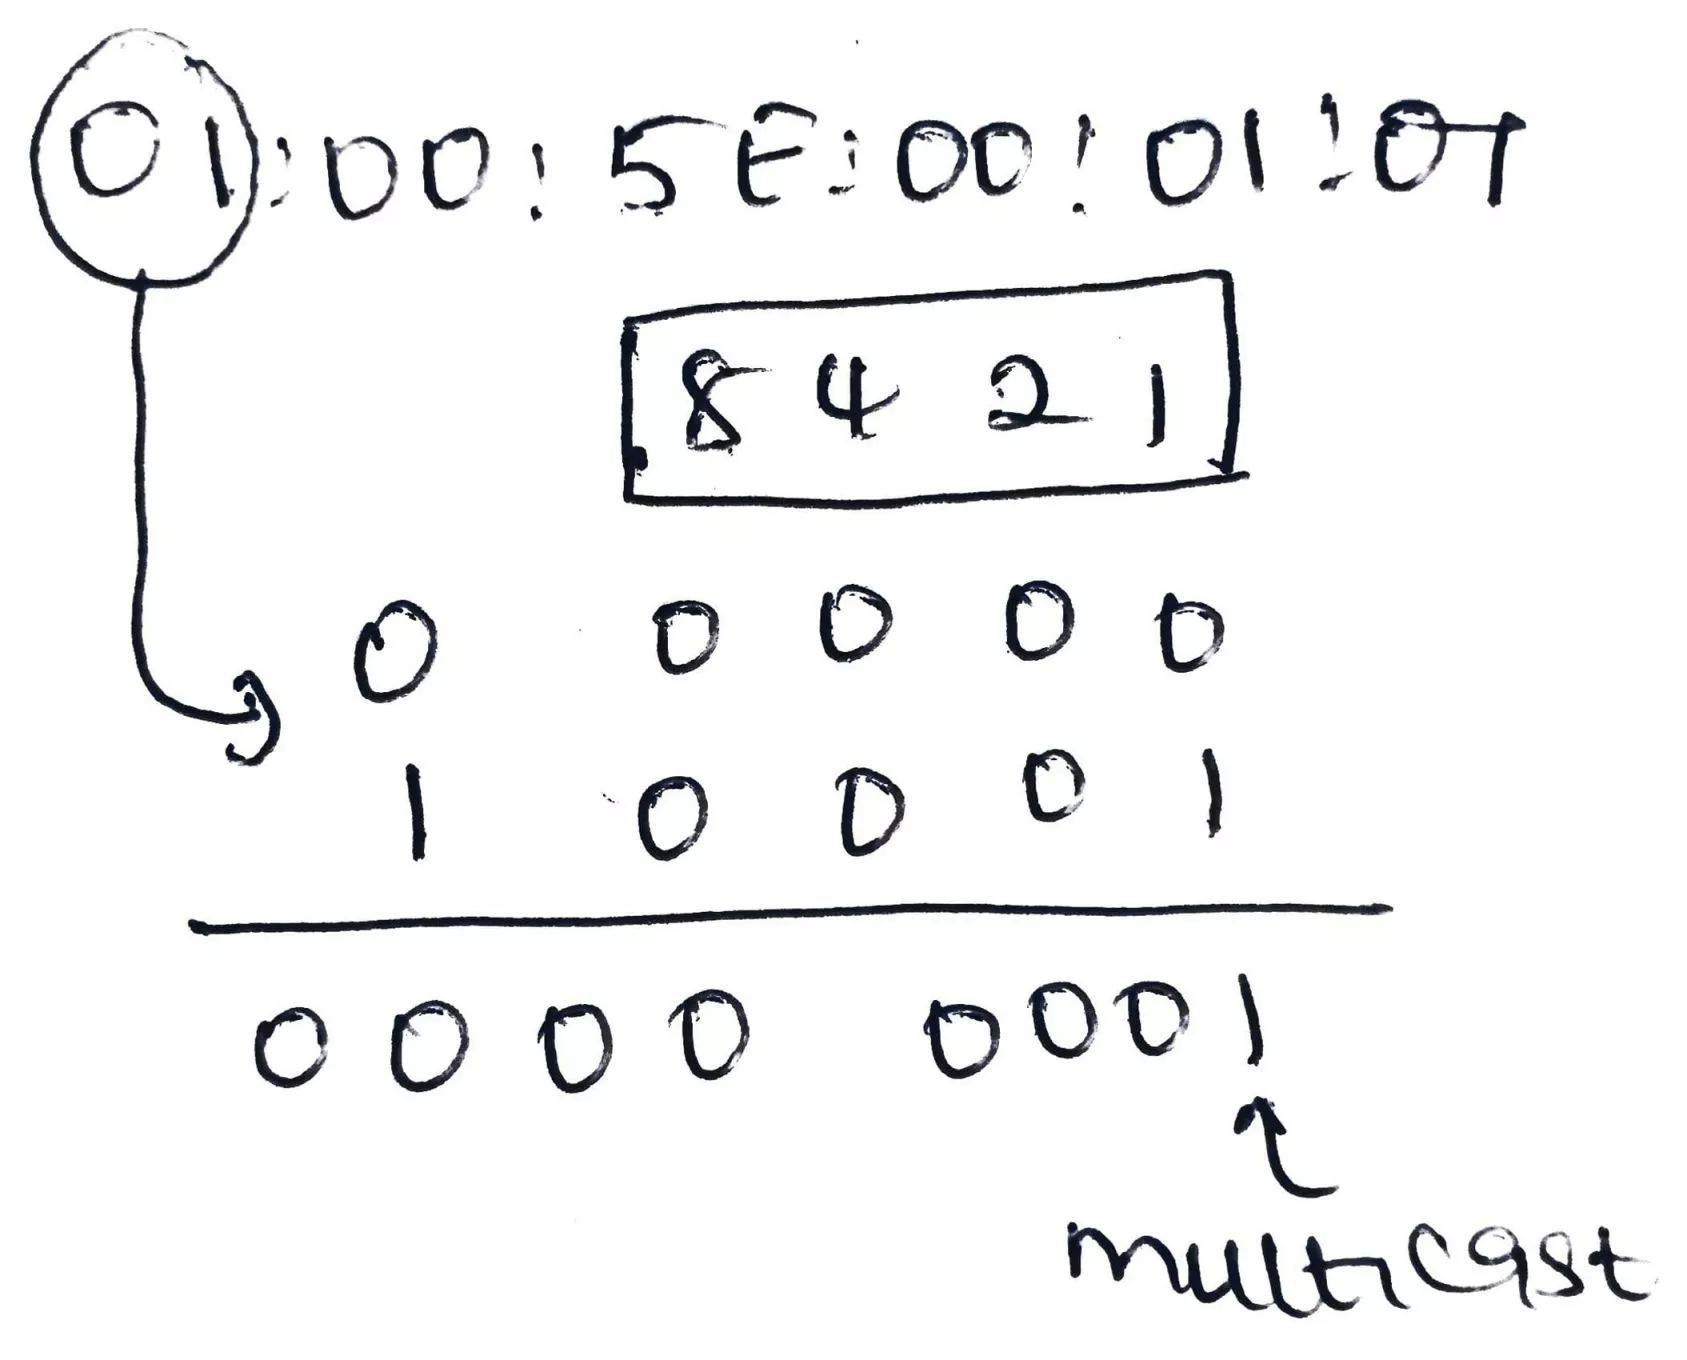 01:00:5E:00:01:07
8 4 2 1
0 0 0 0 0
1 0 0 0 1
0 0 0 0 0 0 0 1
multicast